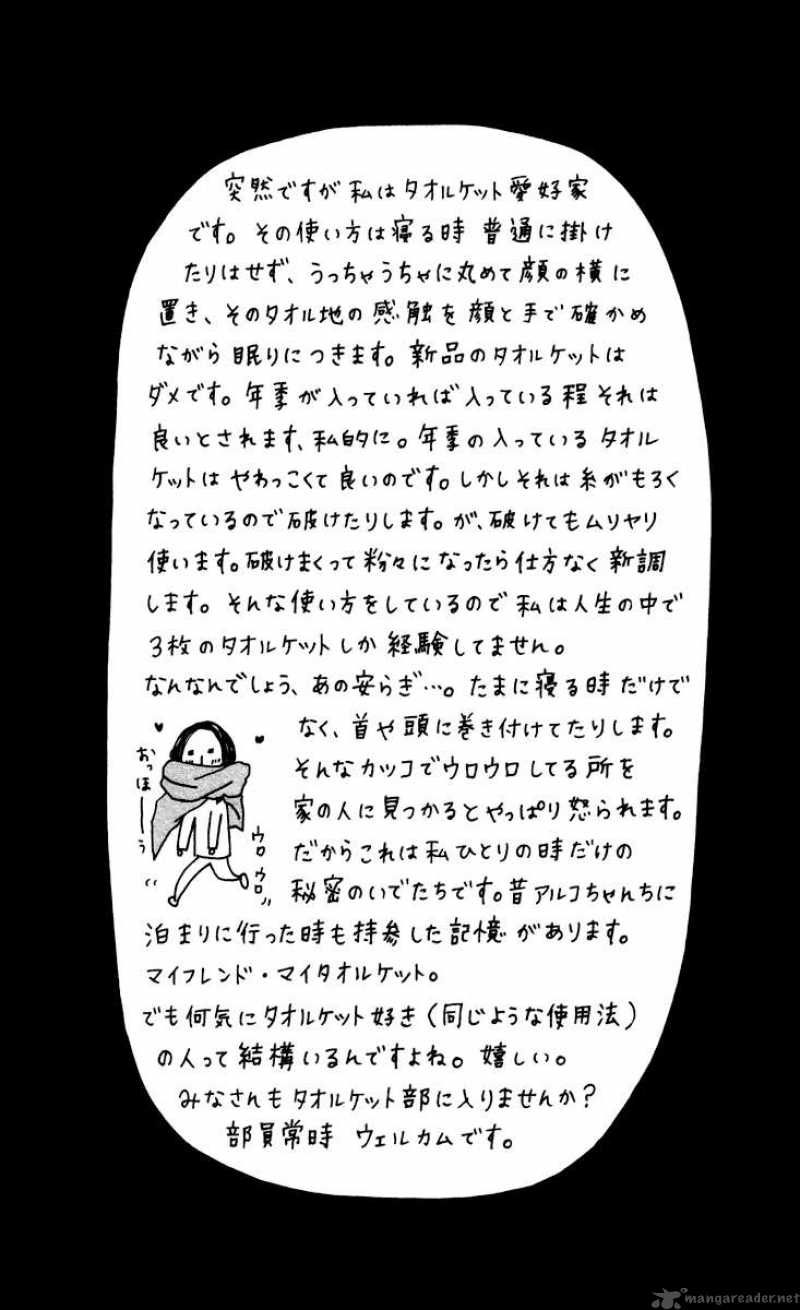 突然ですが私はタオルケット愛好家
です。その使い方は寝る時 普通に掛け
たりはせず、うっちゃうちゃに丸めて顔の横に
置き、そのタオル地の感触を顔と手で確かめ
ながら眠りにつきます。新品のタオルケットは
ダメです。年季が入っていれば入っている程それは
良いとされます、私的に。年季の入っているタオル
ケットはやわっこくて良いのです。しかしそれは糸がもろく
なっているので破けたりします。が、破けてもムリヤリ
使います。破けまくって粉々になったら仕方なく新調
します。そんな使い方をしているので私は人生の中で
3枚のタオルケットしか経験してません。
なんなんでしょう、あの安らぎ…。たまに寝る時だけで
なく、首や頭に巻き付けてたりします。
そんなカッコでウロウロしてる所を
家の人に見つかるとやっぱり怒られます。
だからこれは私ひとりの時だけの
秘密のいでたちです。昔アルコちゃんちに
泊まりに行った時も持参した記憶があります。
マイフレンド・マイタオルケット。
でも何気にタオルケット好き(同じような使用法)
の人って結構いるんですよね。嬉しい。
みなさんもタオルケット部に入りませんか?
部員常時 ウェルカムです。
おっほーう
ウロ
ウロ
mangareader.net